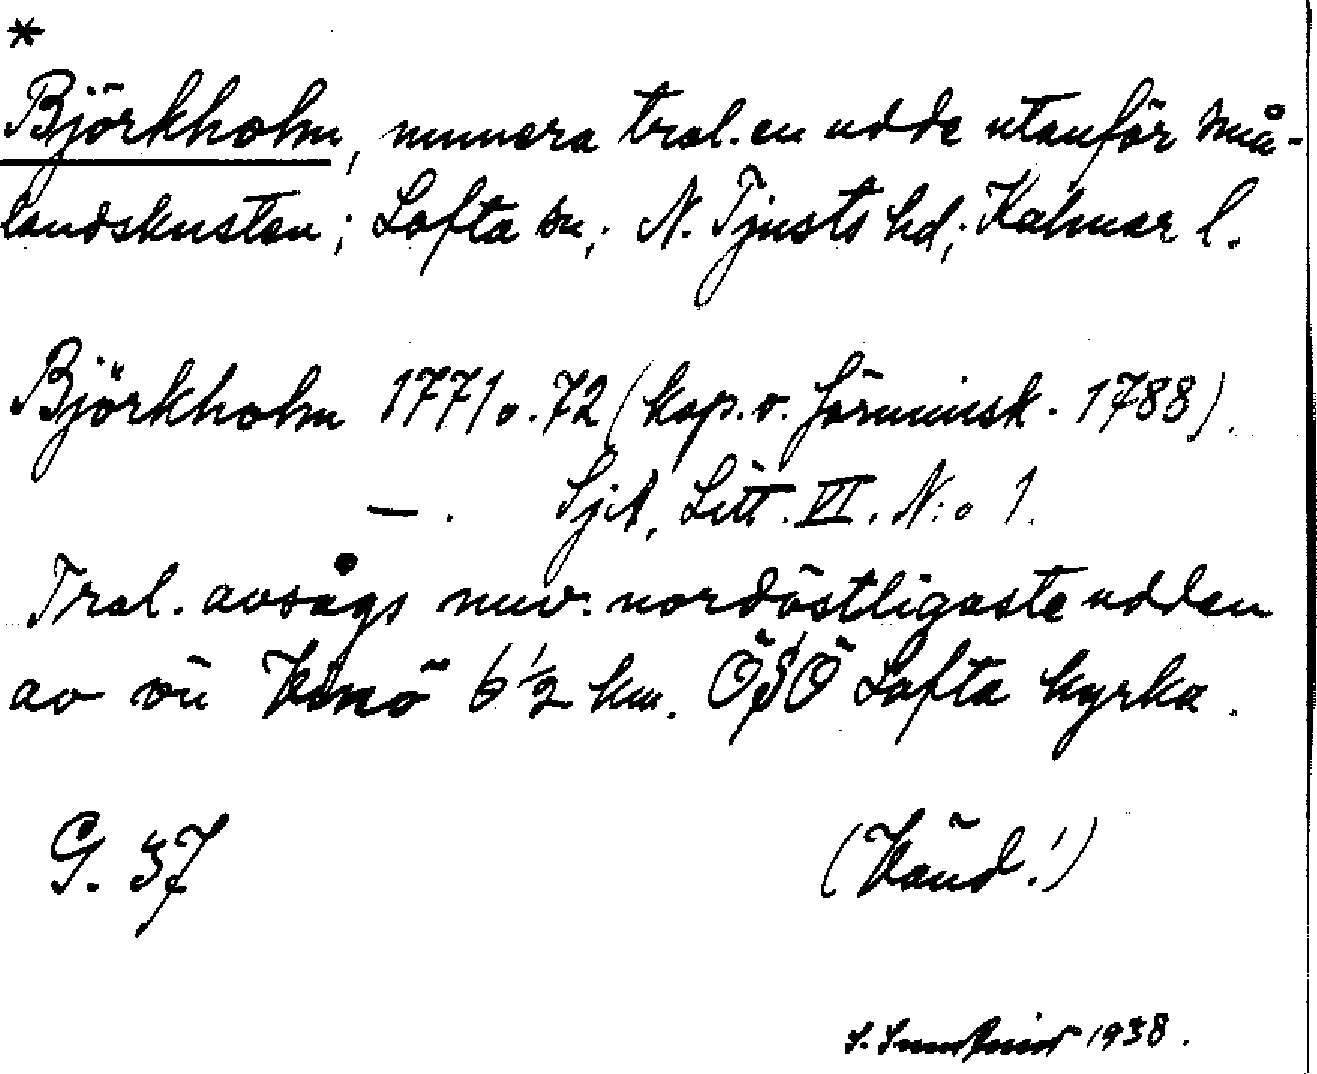 *
Björkholm, numera trol. en udde utanför små-
landskusten; Lofta sn; N. Tjusts hd; Kalmar l.
Björkholm 1771 o. 72 (kop. o. förminsk. 1788).
—. Sjk, Litt. VI. N:o 1.
Trol. avsågs nuv. nordöstligaste udden
av ön Vinö 6 1/2 km. ÖSÖ Lofta kyrka.
G. 37 (Vänd!)
S. 1938.